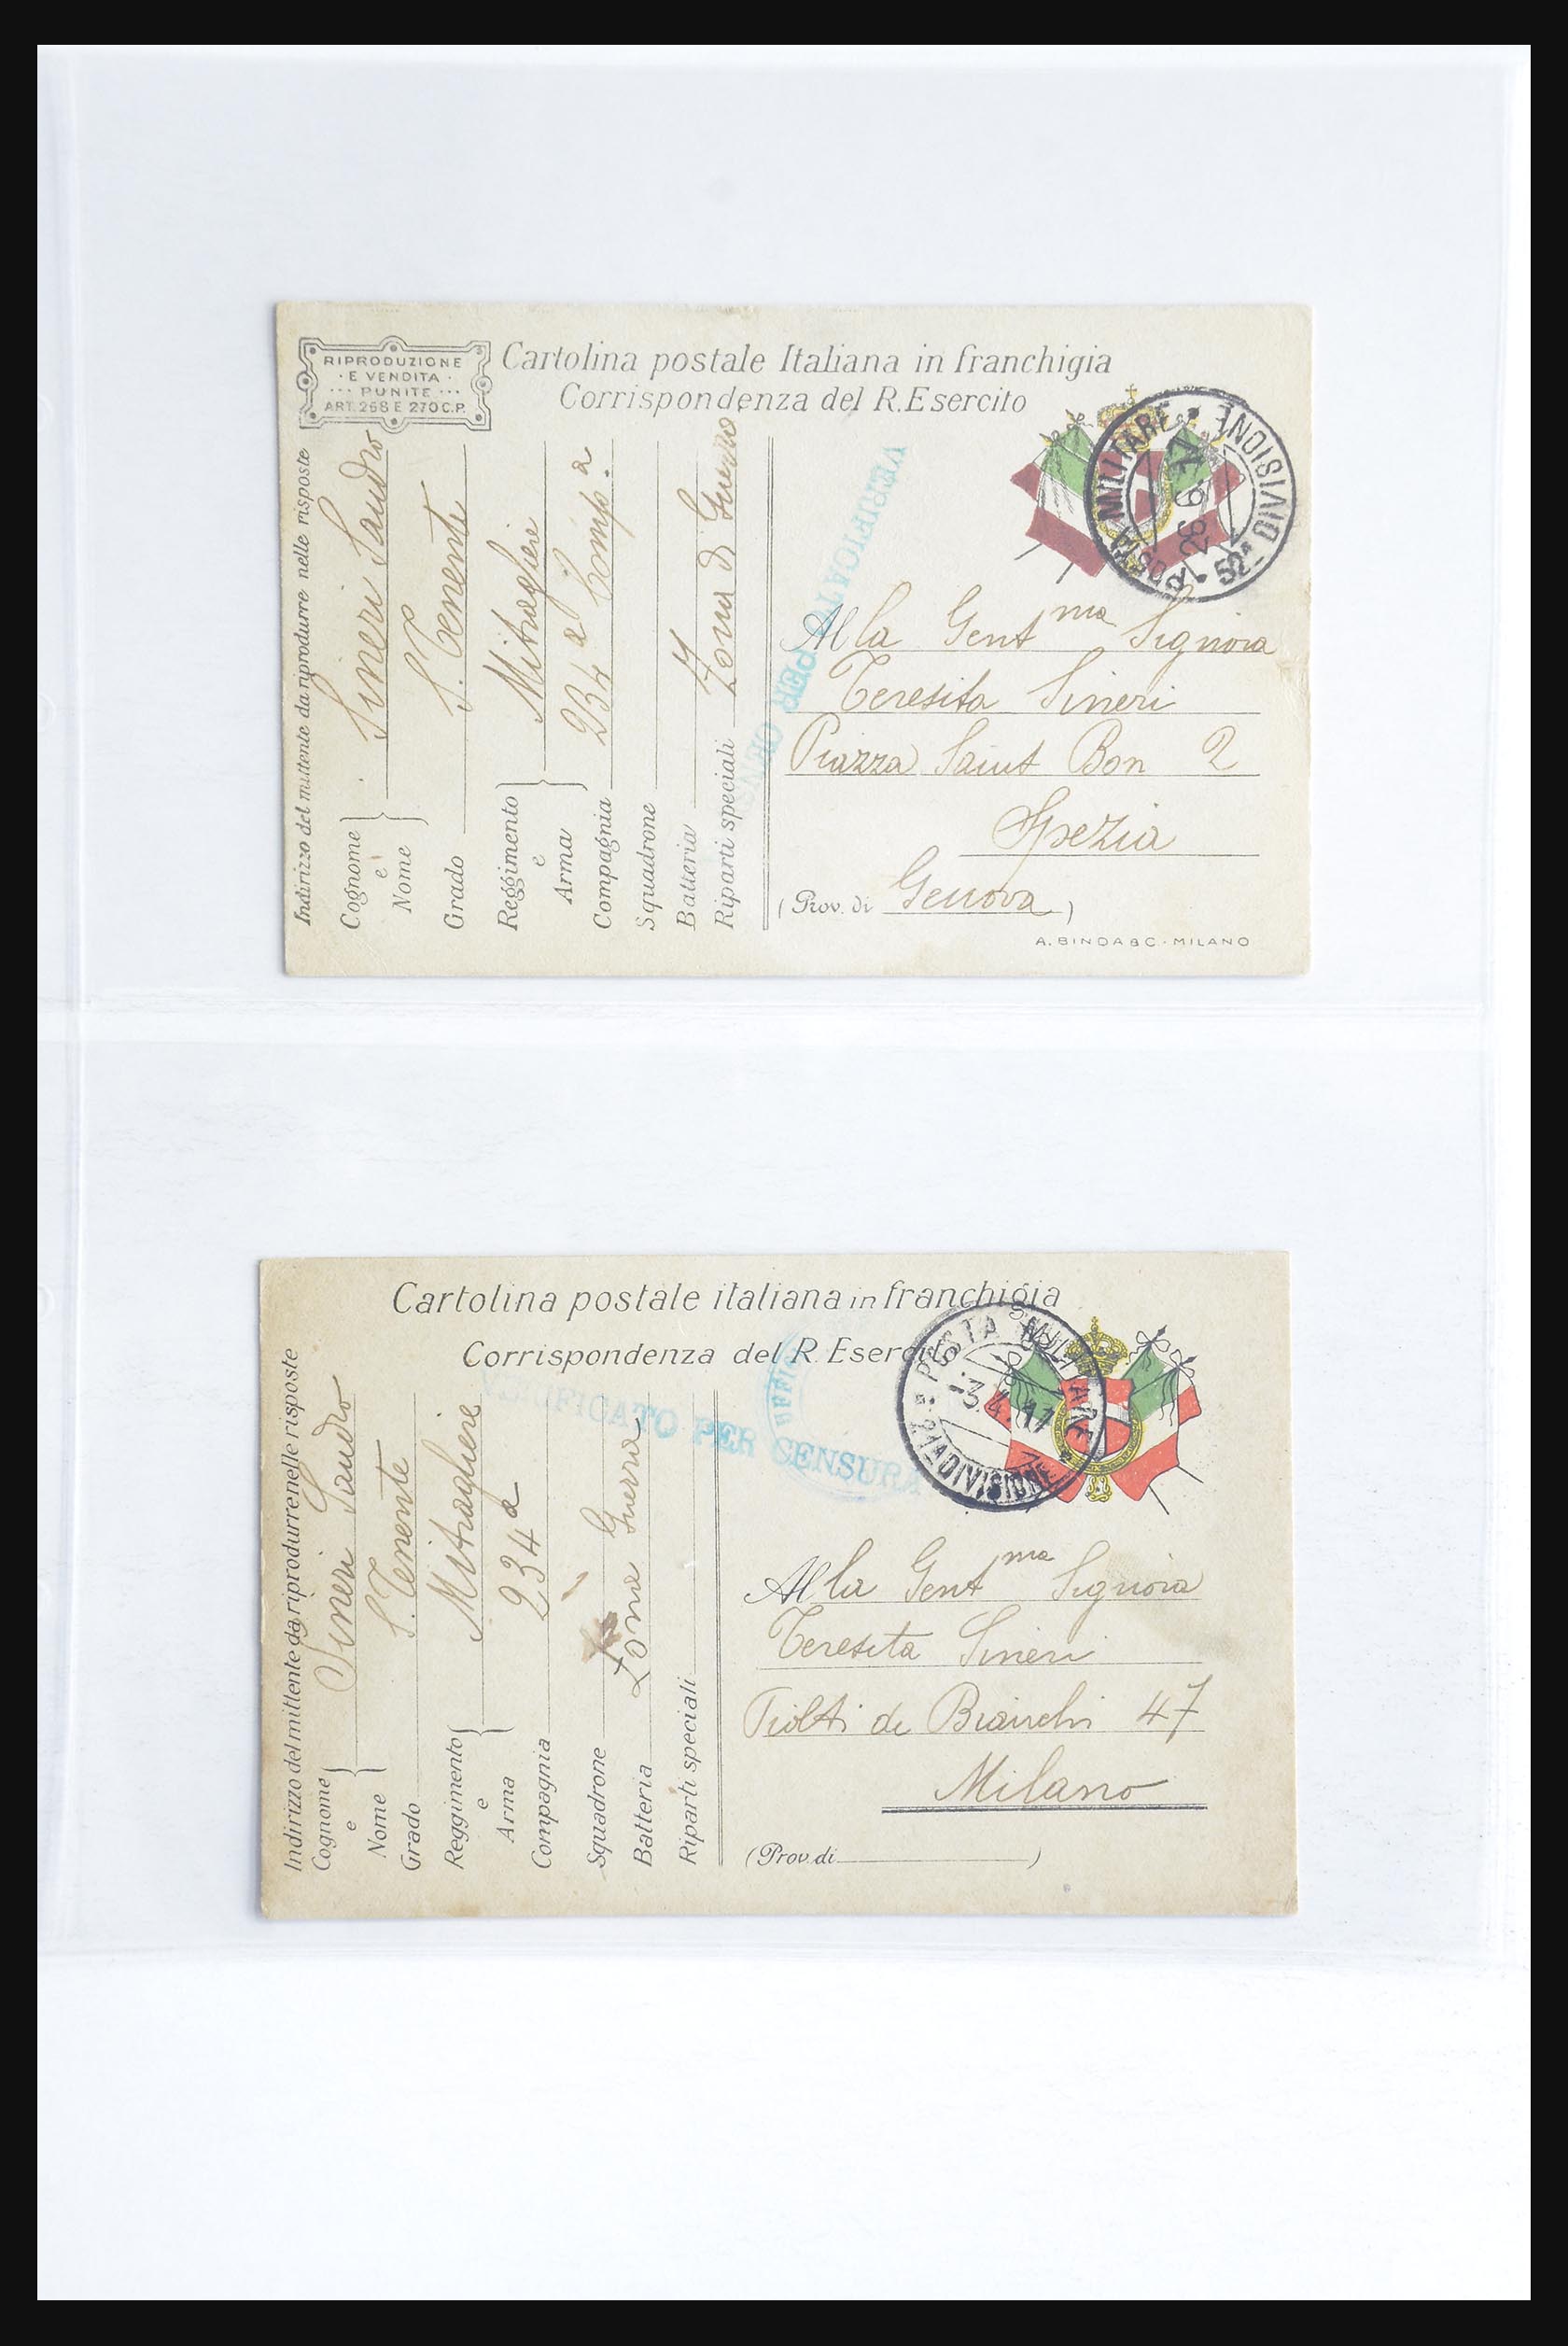 RIPRODUZIONE
· E VENDITA ·
··· PUNITE ···
ART. 268 E 270 C.P.
Cartolina postale Italiana in franchigia
Corrispondenza del R. Esercito
Indirizzo del mittente da riprodurre nelle risposte
Cognome e Nome } Sineri Sandro
Grado S. Tenente
Reggimento e Arma } Mitragliere
Compagnia 234ª Comp.ª
Squadrone
Batteria
Riparti speciali Zona di Guerra
VERIFICATO PER CENS
POSTA MILITARE • 52ª DIVISIONE •
26.9.17
Alla Gentma Signora
Teresita Sineri
Piazza Saint Bon 2
Spezia
(Prov. di Genova)
A. BINDA & C. · MILANO
Cartolina postale italiana in franchigia
Corrispondenza del R. Esercito
Indirizzo del mittente da riprodurre nelle risposte
Cognome e Nome } Sineri Sandro
Grado S. Tenente
Reggimento e Arma } Mitragliere
Compagnia 234ª
Squadrone
Batteria Zona Guerra
Riparti speciali
VERIFICATO PER CENSURA
UFFIC
POSTA MILITARE
DIVISIONE
3.4.17
Alla Gentma Signora
Teresita Sineri
de Bianchi 47
Milano
(Prov. di )